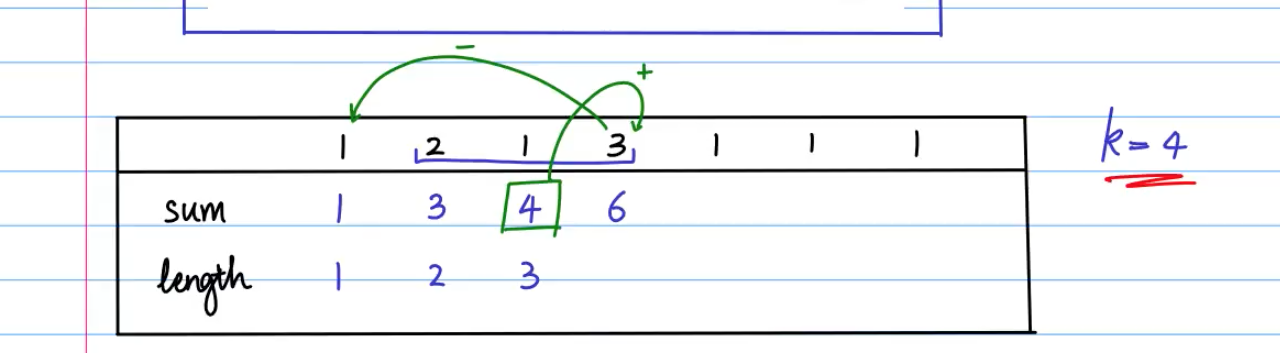 - +
1 2 1 3 1 1 1 k = 4
sum 1 3 4 6
length 1 2 3